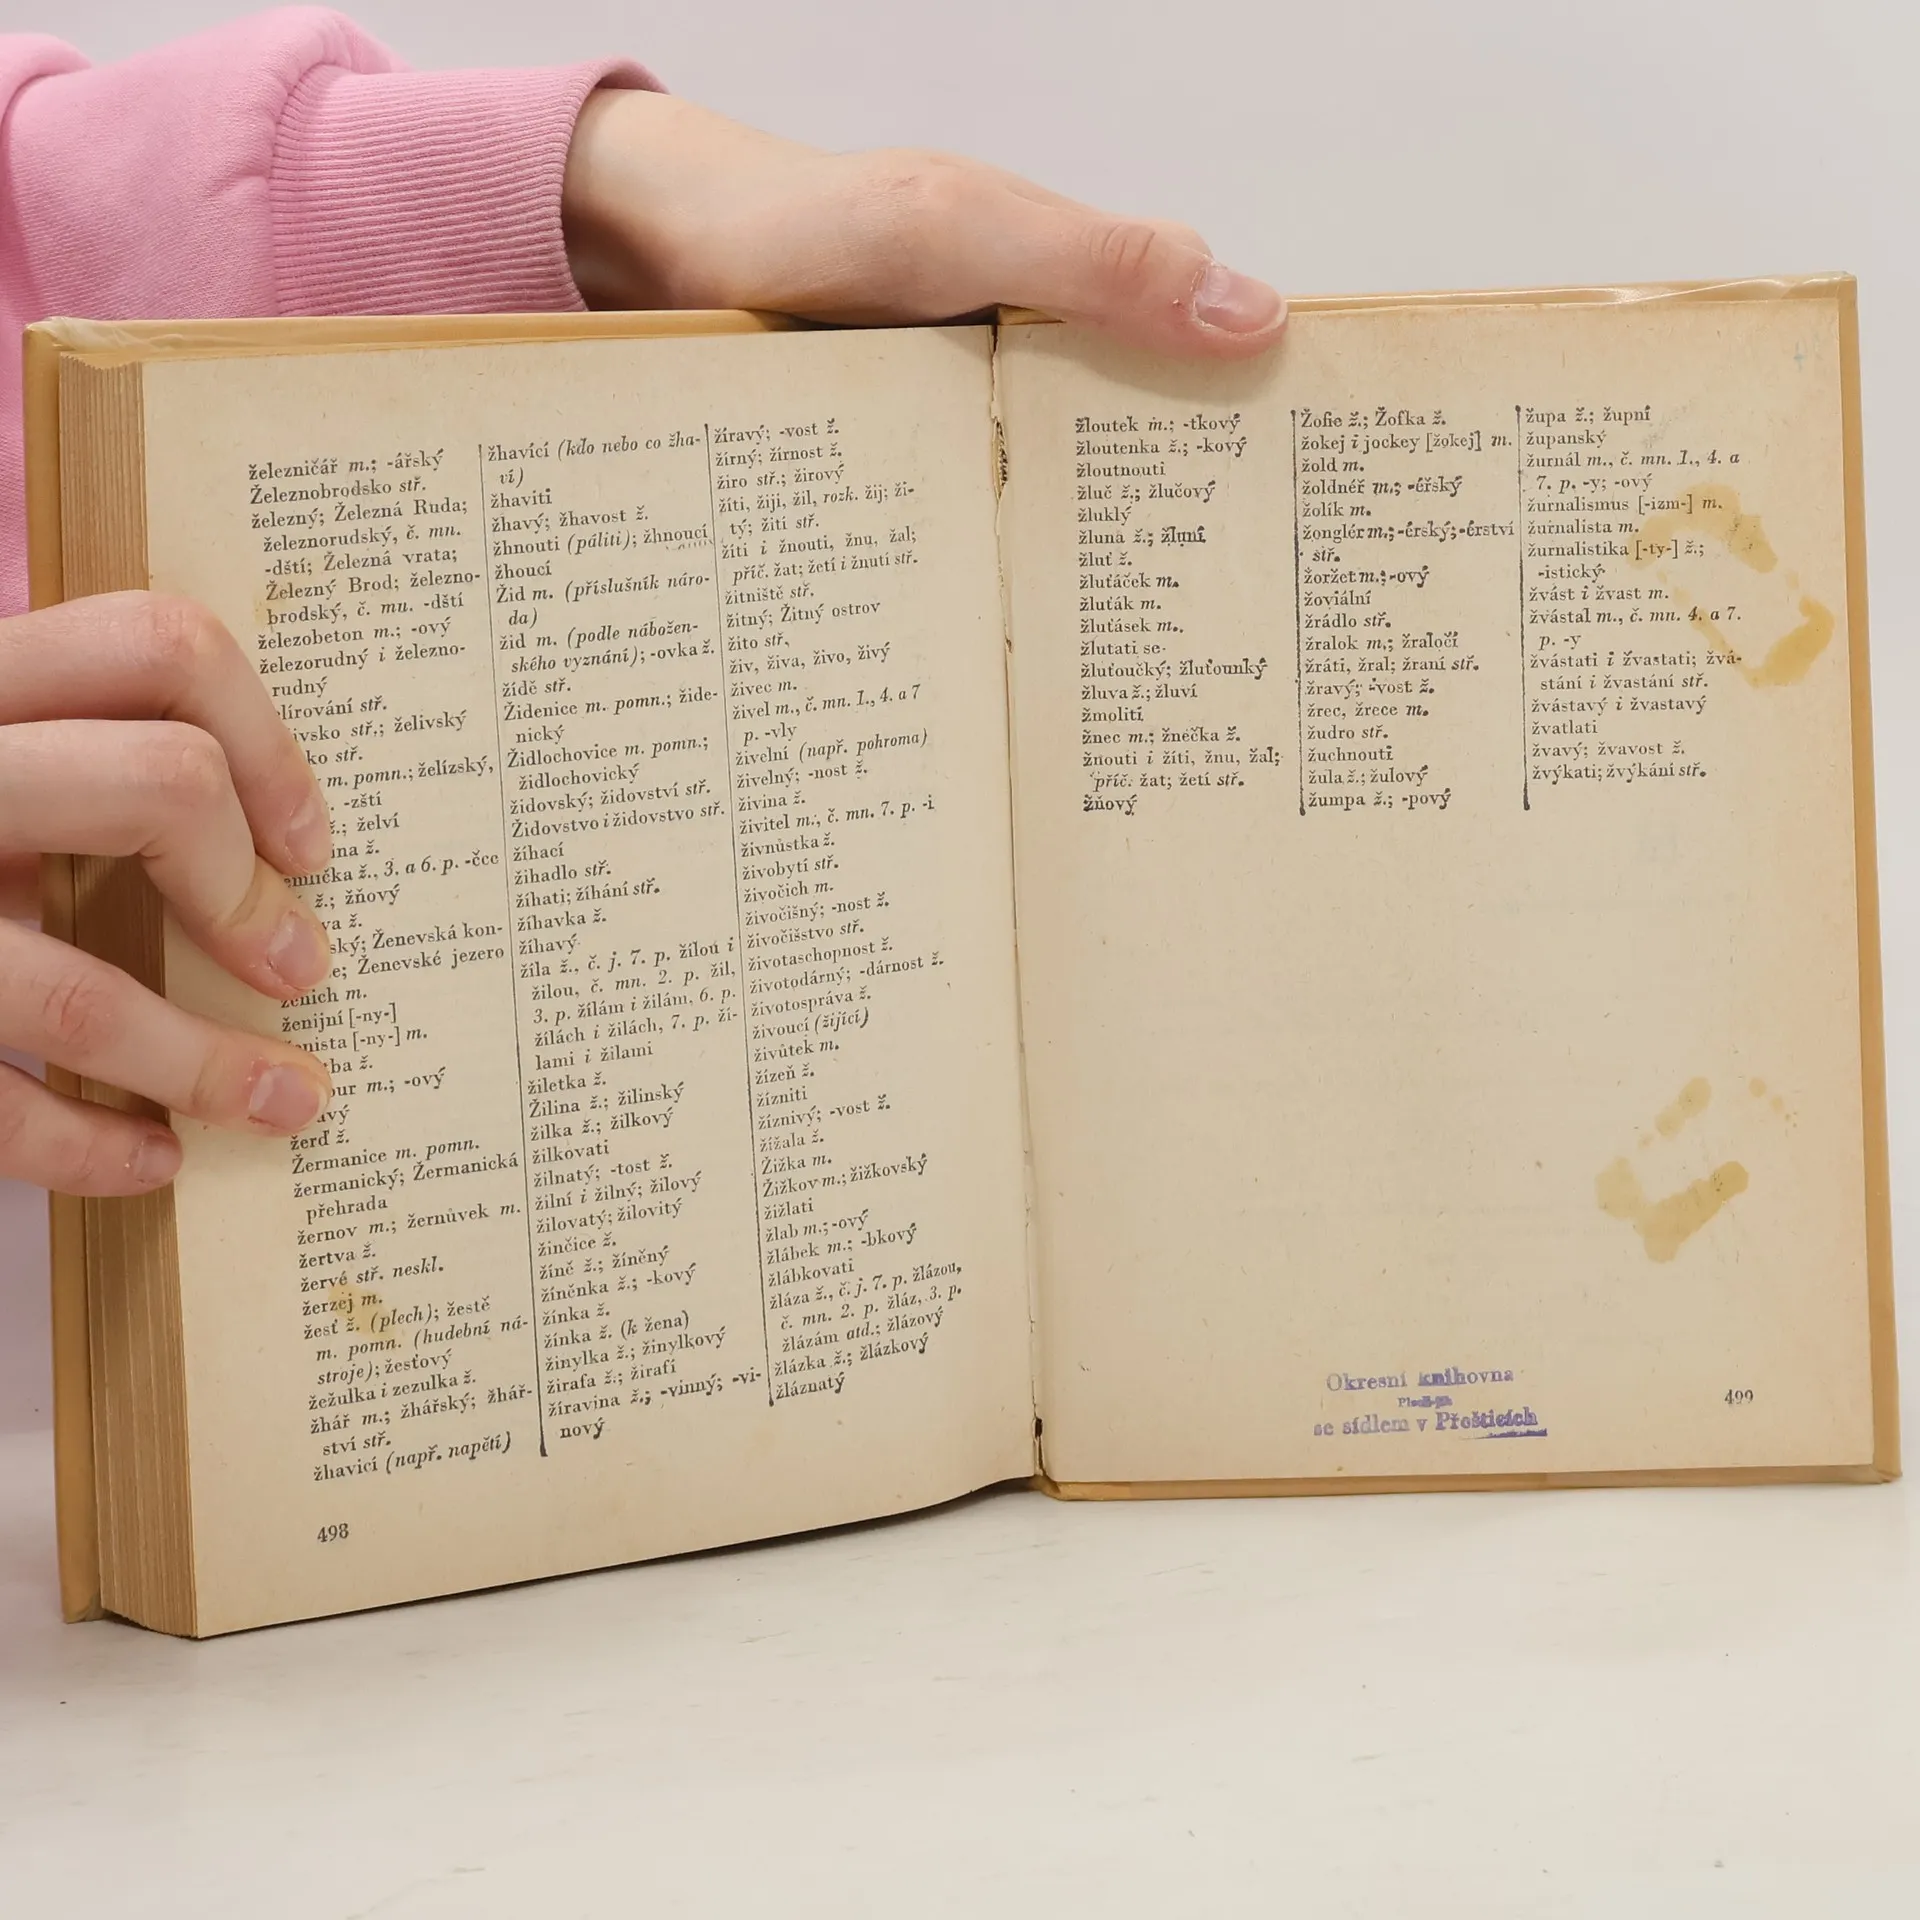 železničář m.; -ářský
Železnobrodsko stř.
železný; Železná Ruda;
železnorudský, č. mn.
-dští; Železná vrata;
Železný Brod; železno-
brodský, č. mn. -dští
železobeton m.; -ový
železorudný i železno-
rudný
lírování stř.
ivsko stř.; želivský
ko stř.
m. pomn.; želízský,
-zští
ž.; želví
ina ž.
emlička ž., 3. a 6. p. -čce
ž.; žňový
va ž.
ský; Ženevská kon-
e; Ženevské jezero
ženich m.
ženijní [-ny-]
ženista [-ny-] m.
ba ž.
our m.; -ový
avý
žerď ž.
Žermanice m. pomn.
žermanický; Žermanická
přehrada
žernov m.; žernůvek m.
žertva ž.
žervé stř. neskl.
žerzej m.
žesť ž. (plech); žestě
m. pomn. (hudební ná-
stroje); žesťový
žežulka i zezulka ž.
žhář m.; žhářský; žhář-
ství stř.
žhavicí (např. napětí)
žhavící (kdo nebo co žha-
ví)
žhaviti
žhavý; žhavost ž.
žhnouti (páliti); žhnoucí
žhoucí
Žid m. (příslušník náro-
da)
žid m. (podle nábožen-
ského vyznání); -ovka ž.
žídě stř.
Židenice m. pomn.; žide-
nický
Židlochovice m. pomn.;
židlochovický
židovský; židovství stř.
Židovstvo i židovstvo stř.
žihací
žihadlo stř.
žíhati; žíhání stř.
žíhavka ž.
žíhavý
žíla ž., č. j. 7. p. žílou i
žilou, č. mn. 2. p. žil,
3. p. žílám i žilám, 6. p.
žílách i žilách, 7. p. ží-
lami i žilami
žiletka ž.
Žilina ž.; žilinský
žilka ž.; žilkový
žilkovati
žilnatý; -tost ž.
žilní i žilný; žilový
žilovatý; žilovitý
žinčice ž.
žíně ž.; žíněný
žíněnka ž.; -kový
žínka ž.
žínka ž. (k žena)
žinylka ž.; žinylkový
žirafa ž.; žirafí
žíravina ž.; -vinný; -vi-
nový
žíravý; -vost ž.
žírný; žírnost ž.
žiro stř.; žirový
žíti, žiji, žil, rozk. žij; ži-
tý; žití stř.
žíti i žnouti, žnu, žal;
příč. žat; žetí i žnutí stř.
žitniště stř.
žitný; Žitný ostrov
žito stř.
živ, živa, živo, živý
živec m.
živel m., č. mn. 1., 4. a 7
p. -vly
živelní (např. pohroma)
živelný; -nost ž.
živina ž.
živitel m., č. mn. 7. p. -i
živnůstka ž.
živobytí stř.
živočich m.
živočišný; -nost ž.
živočišstvo stř.
životaschopnost ž.
životodárný; -dárnost ž.
životospráva ž.
živoucí (žijící)
živůtek m.
žízeň ž.
žízniti
žíznivý; -vost ž.
žížala ž.
Žižka m.
Žižkov m.; žižkovský
žižlati
žlab m.; -ový
žlábek m.; -bkový
žlábkovati
žláza ž., č. j. 7. p. žlázou,
č. mn. 2. p. žláz, 3. p.
žlázám atd.; žlázový
žlázka ž.; žlázkový
žláznatý
498
žloutek m.; -tkový
žloutenka ž.; -kový
žloutnouti
žluč ž.; žlučový
žluklý
žluna ž.; žluní
žluť ž.
žluťáček m.
žluťák m.
žluťásek m.
žlutati se
žluťoučký; žluťounký
žluva ž.; žluví
žmoliti
žnec m.; žnečka ž.
žnouti i žíti, žnu, žal;
příč. žat; žetí stř.
žňový
Žofie ž.; Žofka ž.
žokej i jockey [žokej] m.
žold m.
žoldnéř m.; -éřský
žolík m.
žonglér m.; -érský; -érství
stř.
žoržet m.; -ový
žoviální
žrádlo stř.
žralok m.; žraločí
žráti, žral; žraní stř.
žravý; -vost ž.
žrec, žrece m.
žudro stř.
žuchnouti
žula ž.; žulový
žumpa ž.; -pový
župa ž.; župní
županský
žurnál m., č. mn. 1., 4. a
7. p. -y; -ový
žurnalismus [-izm-] m.
žurnalista m.
žurnalistika [-ty-] ž.;
-istický
žvást i žvast m.
žvástal m., č. mn. 4. a 7.
p. -y
žvástati i žvastati; žvá-
stání i žvastání stř.
žvástavý i žvastavý
žvatlati
žvavý; žvavost ž.
žvýkati; žvýkání stř.
Okresní knihovna
se sídlem v Přešticích
499